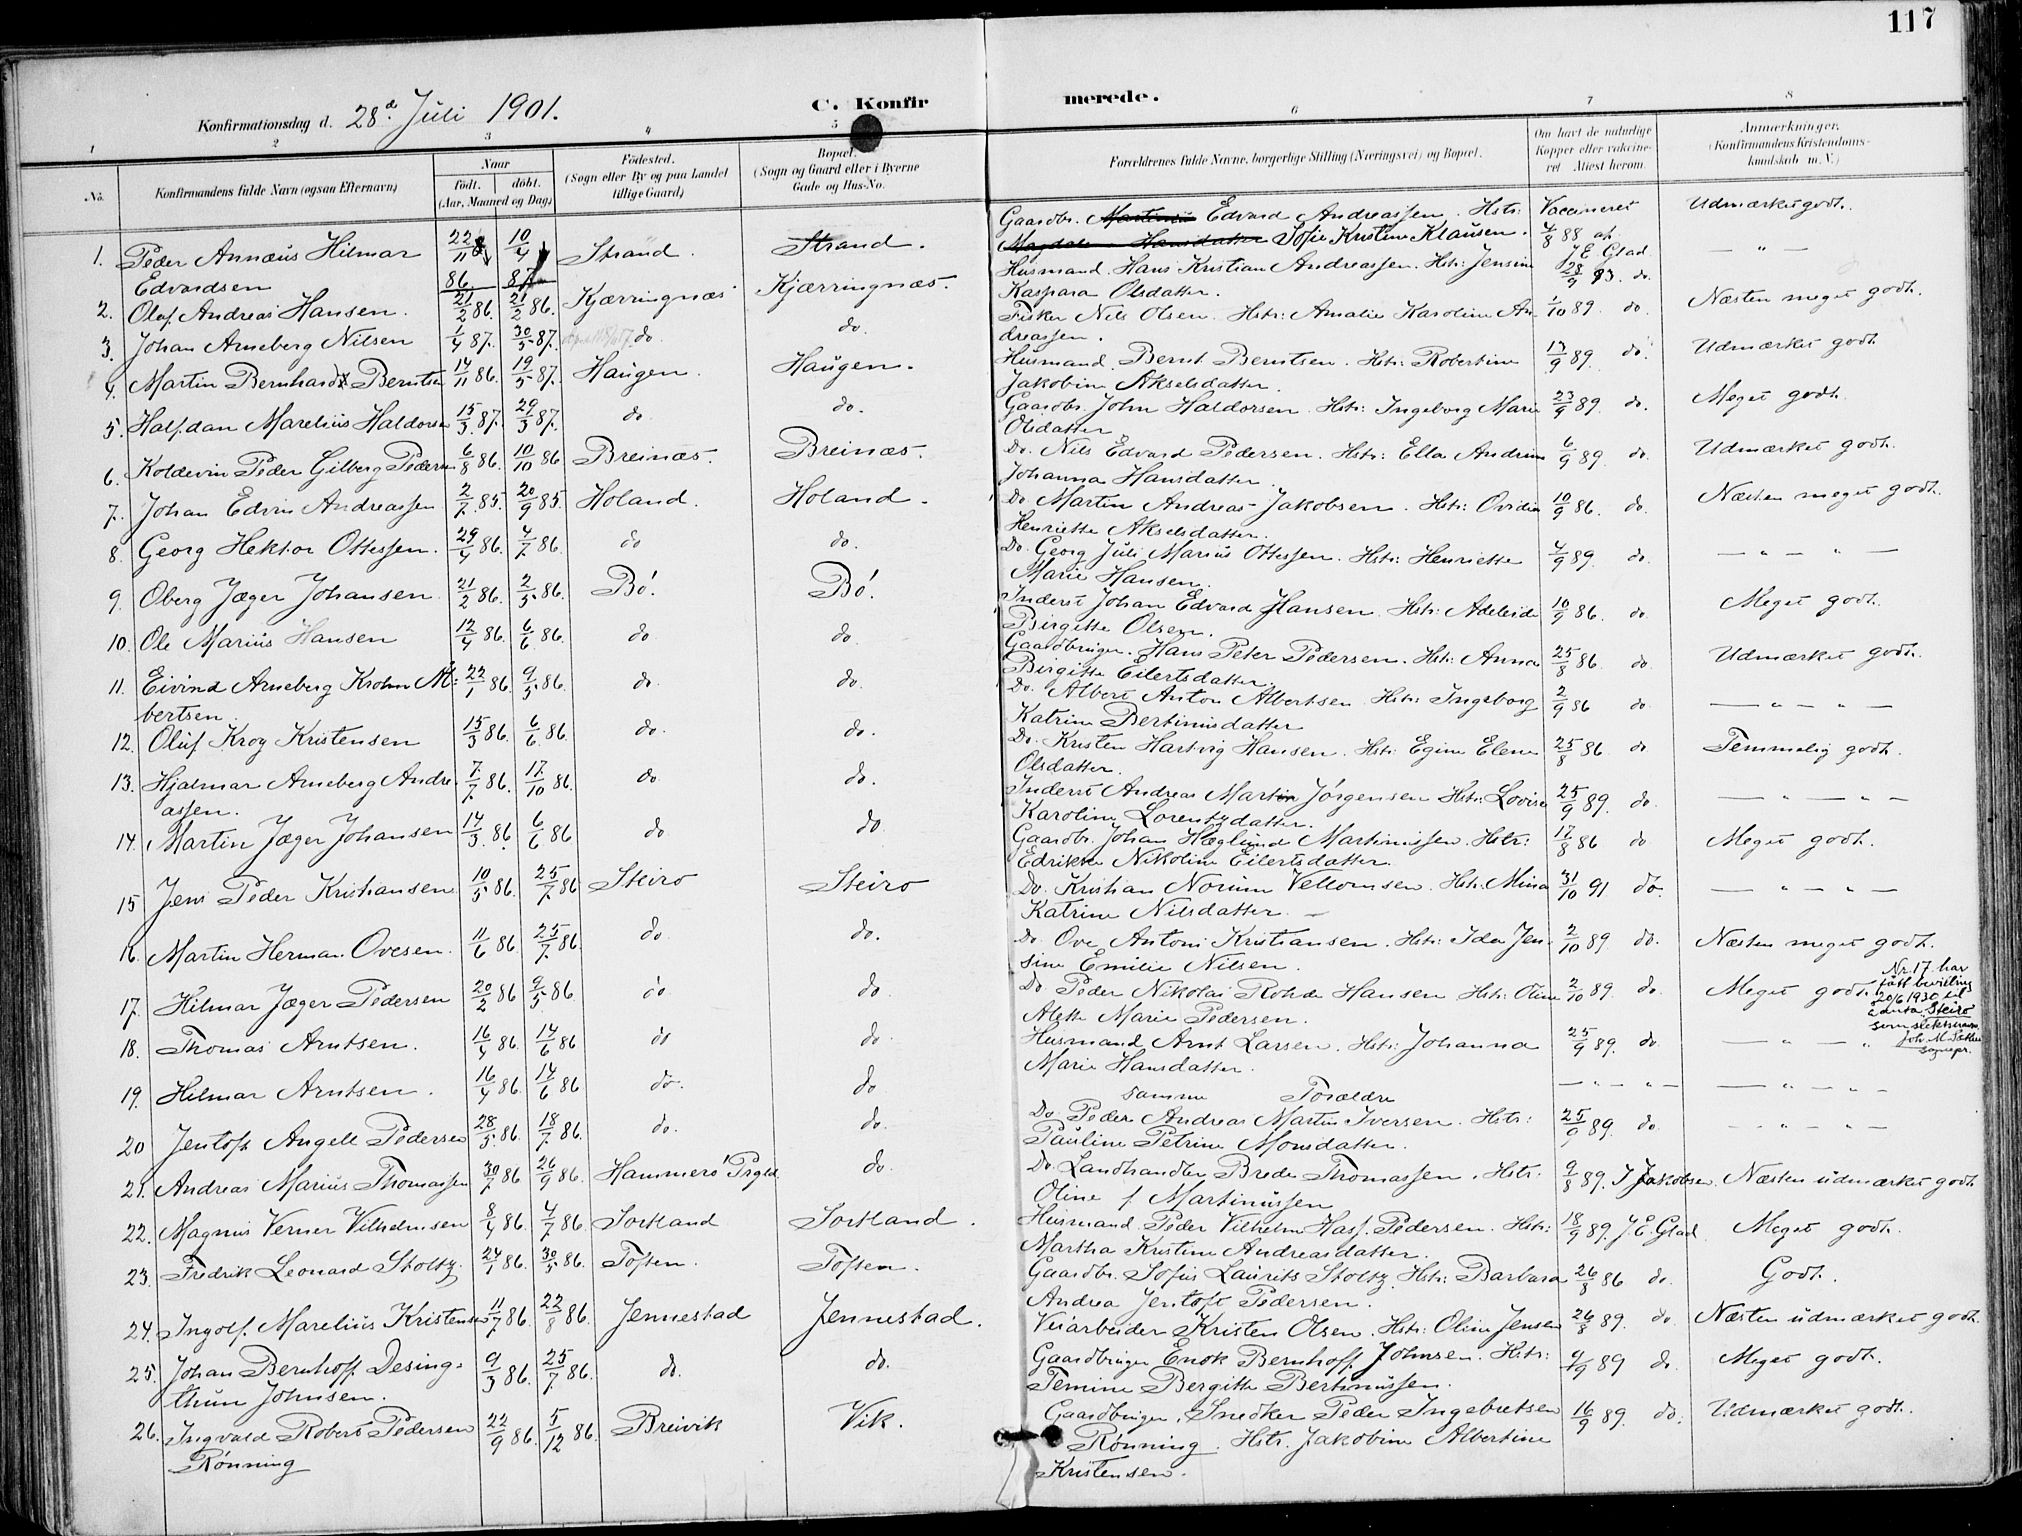 117
Konfirmationsdag d. 28d Juli 1901.
C. Konfirmerede.
1 2 3 4 5 6 7 8
No.
Konfirmandens fulde Navn (ogsaa Efternavn)
Naar
født. døbt.
(Aar, Maaned og Dag)
Fødested.
(Sogn eller By og paa Landet
tillige Gaard)
Bopæl.
(Sogn og Gaard eller i Byerne
Gade og Hus-No.
Forældrenes fulde Navne, borgerlige Stilling (Næringsvei) og Bopæl.
Om havt de naturlige
Kopper eller vaccine-
ret Attest herom.
Anmærkninger.
(Konfirmandens Kristendoms-
kundskab m. V.)
1. Peder Annæus Hilmar 22/11 86 10/4 87 Strand. Strand. Gaardbr. Edvard Andreassen. Hstr: Vaccineret Udmærket godt.
Edvardsen Sofie Kristine Klausen. 4/8 88 af J. E. Glad
2. Olaf Andreas Hansen. 21/2 86. 21/2 86. Kjærringnæs Kjærringnæs. Husmand. Hans Kristian Andreassen. Hstr: Jensine 28/9 93. do. — " —
Kaspara Olsdatter.
3. Johan Arneberg Nilsen 1/4 87. 30/5 87. do do. Fisker Nils Olsen. Hstr: Amalie Karoline An- 1/10 89. do. Næsten meget godt.
dreassen.
4. Martin Bernhard Berntsen 14/11 86. 19/5 87. Haugen. Haugen. Husmand. Bernt Berntsen. Hstr: Robertine 13/9 89. do. Udmærket godt
Jakobine Akselsdatter.
5. Halfdan Marelius Haldorsen 15/3 87. 29/3 87. do do. Gaardbr. John Haldorsen. Hstr: Ingeborg Marie 23/9 89. do. Meget godt.
Olsdatter
6. Koldevin Peder Gilberg Pedersen 6/8 86. 10/10 86 Breinæs. Breinæs. Do. Nils Edvard Pedersen. Hstr: Ella Andrine 6/9 89. do. Udmærket godt.
Johanna Hansdatter.
7. Johan Edvin Andreassen 2/7 85. 20/9 85. Holand. Holand. Do Martin Andreas Jakobsen. Hstr: Ovidia 10/9 86. do. Næsten meget godt.
Henriette Akselsdatter.
8. Georg Hektor Ottessen. 29/4 86. 4/7 86. do do. Do. Georg Juli Marius Ottessen. Hstr: Henriette 4/9 89. do. — " — " —
Marie Hansen.
9. Oberg Jæger Johansen 21/2 86. 2/5 86. Bö. Bö. Inderst Johan Edvard Hansen. Hstr: Adeleide 10/9 86. do. Meget godt.
Birgitte Olsen.
10. Ole Marius Hansen 12/4 86. 6/6 86. do do. Gaardbruger. Hans Peter Pedersen. Hstr: Anna 25/8 86 do. Udmærket godt.
Birgitte Eilertsdatter.
11. Eivind Arneberg Krohn Al- 22/1 86. 9/5 86. do. do. Do. Albert Anton Albertsen. Hstr: Ingeborg 2/9 86 do — " — " —
bertsen. Katrine Bertinusdatter
12. Oluf Kroy Kristensen 15/3 86. 6/6 86. do. do. Do. Kristen Hartvig Hansen. Hstr: Egine Elene 25/8 86. do Temmelig godt.
Olsdatter.
13. Hjalmar Arneberg Andre- 7/7 86. 17/10 86. do do. Inderst Andreas Martin Jörgensen Hstr: Lovise 25/9 89. do. — " — " —
assen. Karoline Lorentzdatter.
14. Martin Jæger Johansen 14/3. 86. 6/6 86 do do Gaardbr. Johan Hæglund Martinussen. Hstr: 17/8 86 do Meget godt.
Edrikke Nikoline Eilertsdatter.
15 Jens Peder Kristiansen 10/5 86. 25/7. 86 Steiro Steiro Do. Kristian Norum Vellomsen. Hstr: Mina 31/10 91 do. — " — " —
Katrine Nilsdatter.
16. Martin Herman Ovesen. 11/6 86. 25/7. 86. do. do. Do. Ove Antoni Kristiansen. Hstr: Ida Jen- 2/10 89. do. Næsten meget godt.
sine Emilie Nilsen.
17. Hilmar Jæger Pedersen 20/2 86 9/5 86. do do Do Peder Nikolai Rohde Hansen Hstr: Oline 2/10 89. do. Meget godt.
Alette Marie Pedersen.
Nr. 17. har
fått bevilling
20/6 1930 til
å anta Steiro
som slektsnavn
Joh. M.
sognepr.
18. Thomas Arntsen. 16/4 86. 14/6 86 do do. Husmand Arnt Larsen. Hstr: Johanna 25/9 89. do. — " — "
Marie Hansdatter.
19. Hilmar Arntsen. 16/4 86. 14/6 86 do. do samme Forældre — " — " — — " — " —
20 Jentoft Angell Pedersen 28/5 86. 18/7 86. do. do. Do. Peder Andreas Martin Iversen. Hstr: 25/9 89. do. — " — " —
Pauline Petrine Monsdatter.
21. Andreas Marius Thomassen 30/7 86 26/9 86. Hammerö Prgld. do. Do. Landhandler Brede Thomassen. Hstr: 9/8 89. I Jakobsen. Næsten udmærket godt
Oline f Martinussen
22. Magnus Verner Vilhelmsen 8/4 86. 4/7 86. Sortland Sortland. Husmand Peder Vilhelm Hass. Pedersen. Hstr: 18/9 89. J. E. Glad Meget godt.
Martha Kristine Andreasdatter.
23. Fredrik Leonard Stoltz. 24/1 86. 30/5 86. Toften. Toften. Gaardbr. Sofus Laurits Stoltz. Hstr: Barbara 26/8 86 do. Godt.
Andrea Jentoft Pedersen.
24. Ingolf. Marelius Kristensen 11/7 86. 22/8 86. Jennestad Jennestad. Veiarbeider Kristen Olsen. Hstr: Oline Jensen 26/8 89. do. Næsten udmærket godt.
25. Johan Bernhoff Desing- 9/3 86. 25/7 86. do. do. Gaardbruger Enok Bernhoff Johnsen. Hstr: 9/9 89 do. Meget godt.
thun Johnsen. Temine Bergitte Bertinussen.
26. Ingvald Robert Pedersen 22/9 86. 5/12 86. Breivik Vik. Gaardbruger, Snedker Peder Ingebretsen 16/9 89. do. Udmærket godt.
Rönning Rönning. Hstr. Jakobine Albertine
Kristensen.